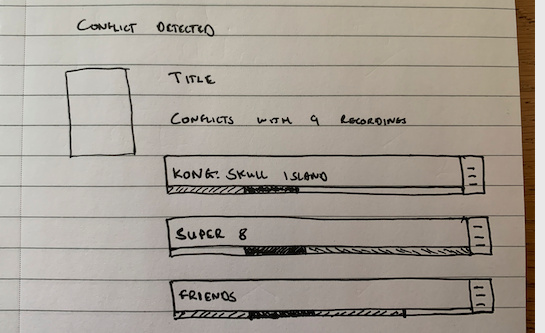 CONFLICT DETECTED
TITLE
CONFLICTS WITH 9 RECORDINGS
KONG: SKULL ISLAND
SUPER 8
FRIENDS